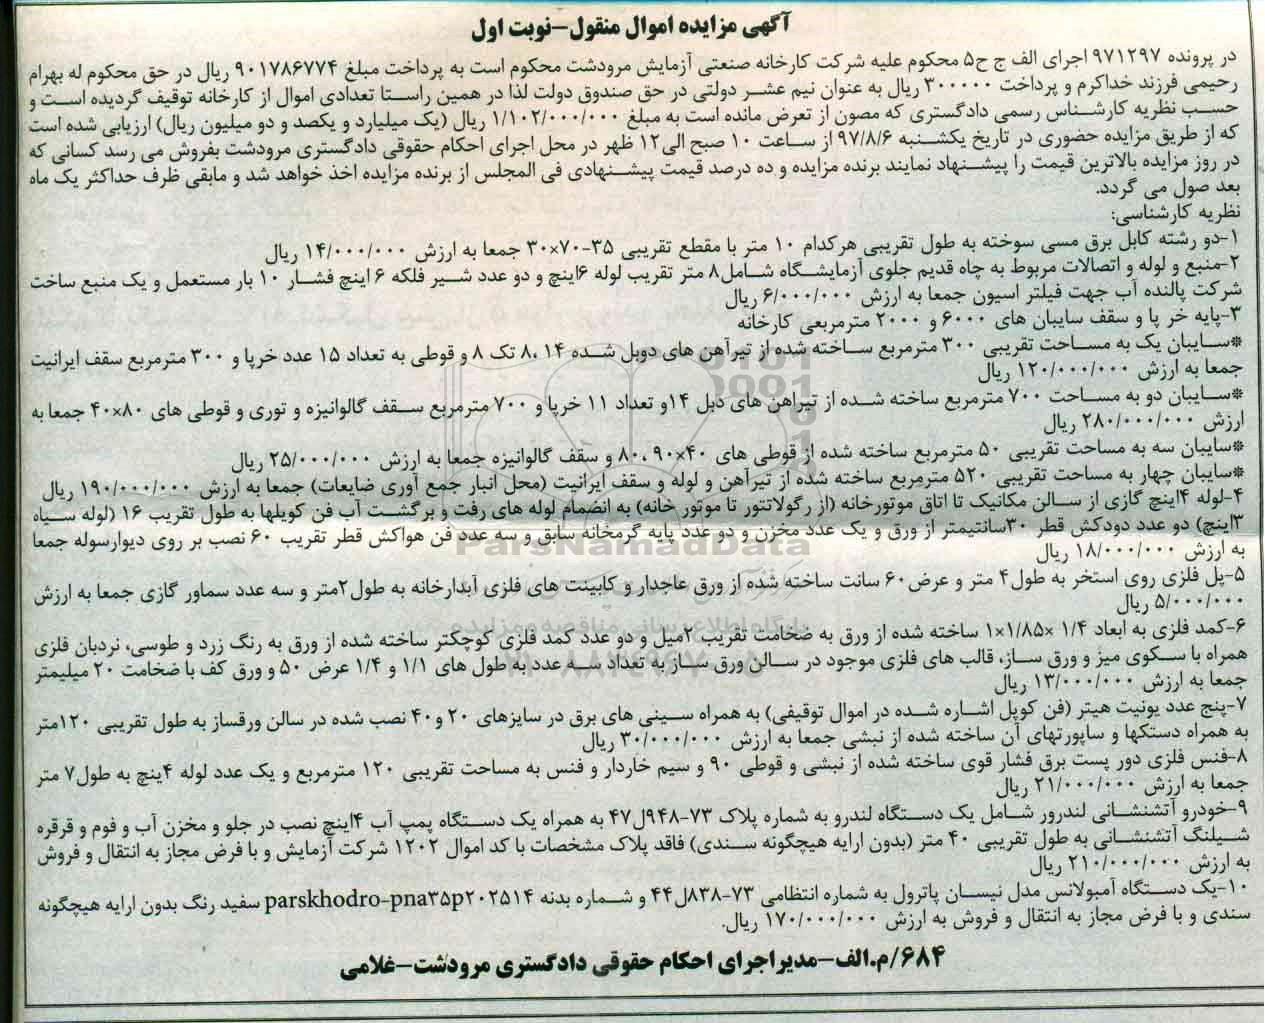 آگهی مزایده اموال منقول-نوبت اول
در پرونده ۹۷۱۲۹۷ اجرای الف ج ح۵ محکوم علیه شرکت کارخانه صنعتی آزمایش مرودشت محکوم است به پرداخت مبلغ ۹۰۱۷۸۶۷۷۴ ریال در حق محکوم له بهرام
رحیمی فرزند خداکرم و پرداخت ۳۰۰۰۰۰۰ ریال به عنوان نیم عشر دولتی در حق صندوق دولت لذا در همین راستا تعدادی اموال از کارخانه توقیف گردیده است و
حسب نظریه کارشناس رسمی دادگستری که مصون از تعرض مانده است به مبلغ ۱/۱۰۲/۰۰۰/۰۰۰ ریال (یک میلیارد و یکصد و دو میلیون ریال) ارزیابی شده است
که از طریق مزایده حضوری در تاریخ یکشنبه ۹۷/۸/۶ از ساعت ۱۰ صبح الی۱۲ ظهر در محل اجرای احکام حقوقی دادگستری مرودشت بفروش می رسد کسانی که
در روز مزایده بالاترین قیمت را پیشنهاد نمایند برنده مزایده و ده درصد قیمت پیشنهادی فی المجلس از برنده مزایده اخذ خواهد شد و مابقی ظرف حداکثر یک ماه
بعد صول می گردد.
نظریه کارشناسی:
۱-دو رشته کابل برق مسی سوخته به طول تقریبی هرکدام ۱۰ متر با مقطع تقریبی ۳۵-۷۰×۳۰ جمعا به ارزش ۱۴/۰۰۰/۰۰۰ ریال
۲-منبع و لوله و اتصالات مربوط به چاه قدیم جلوی آزمایشگاه شامل۸ متر تقریب لوله ۶اینچ و دو عدد شیر فلکه ۶ اینچ فشار ۱۰ بار مستعمل و یک منبع ساخت
شرکت پالنده آب جهت فیلتر اسیون جمعا به ارزش ۶/۰۰۰/۰۰۰ ریال
۳-پایه خر پا و سقف سایبان های ۶۰۰۰ و ۲۰۰۰ مترمربعی کارخانه
*سایبان یک به مساحت تقریبی ۳۰۰ مترمربع ساخته شده از تیرآهن های دوبل شده ۱۴ ،۸ تک ۸ و قوطی به تعداد ۱۵ عدد خرپا و ۳۰۰ مترمربع سقف ایرانیت
جمعا به ارزش ۱۲۰/۰۰۰/۰۰۰ ریال
*سایبان دو به مساحت ۷۰۰ مترمربع ساخته شده از تیراهن های دبل ۱۴و تعداد ۱۱ خرپا و ۷۰۰ مترمربع سقف گالوانیزه و توری و قوطی های ۸۰×۴۰ جمعا به
ارزش ۲۸۰/۰۰۰/۰۰۰ ریال
*سایبان سه به مساحت تقریبی ۵۰ مترمربع ساخته شده از قوطی های ۴۰×۹۰ ،۸۰ و سقف گالوانیزه جمعا به ارزش ۲۵/۰۰۰/۰۰۰ ریال
*سایبان چهار به مساحت تقریبی ۵۲۰ مترمربع ساخته شده از تیرآهن و لوله و سقف ایرانیت (محل انبار جمع آوری ضایعات) جمعا به ارزش ۱۹۰/۰۰۰/۰۰۰ ریال
۴-لوله ۴اینچ گازی از سالن مکانیک تا اتاق موتورخانه (از رگولاتتور تا موتور خانه) به انضمام لوله های رفت و برگشت آب فن کویلها به طول تقریب ۱۶ (لوله سیاه
۳اینچ) دو عدد دودکش قطر ۳۰سانتیمتر از ورق و یک عدد مخزن و دو عدد پایه گرمخانه سابق و سه عدد فن هواکش قطر تقریب ۶۰ نصب بر روی دیوارسوله جمعا
به ارزش ۱۸/۰۰۰/۰۰۰ ریال
۵-پل فلزی روی استخر به طول۴ متر و عرض۶۰ سانت ساخته شده از ورق عاجدار و کابینت های فلزی آبدارخانه به طول۲متر و سه عدد سماور گازی جمعا به ارزش
۵/۰۰۰/۰۰۰ ریال
۶-کمد فلزی به ابعاد ۱/۴ ×۱/۸۵×۱ ساخته شده از ورق به ضخامت تقریب ۲میل و دو عدد کمد فلزی کوچکتر ساخته شده از ورق به رنگ زرد و طوسی، نردبان فلزی
همراه با سکوی میز و ورق ساز، قالب های فلزی موجود در سالن ورق ساز به تعداد سه عدد به طول های ۱/۱ و ۱/۴ عرض ۵۰ و ورق کف با ضخامت ۲۰ میلیمتر
جمعا به ارزش ۱۳/۰۰۰/۰۰۰ ریال
۷-پنج عدد یونیت هیتر (فن کویل اشاره شده در اموال توقیفی) به همراه سینی های برق در سایزهای ۲۰ و۴۰ نصب شده در سالن ورقساز به طول تقریبی ۱۲۰متر
به همراه دستکها و ساپورتهای آن ساخته شده از نبشی جمعا به ارزش ۳۰/۰۰۰/۰۰۰ ریال
۸-فنس فلزی دور پست برق فشار قوی ساخته شده از نبشی و قوطی ۹۰ و سیم خاردار و فنس به مساحت تقریبی ۱۲۰ مترمربع و یک عدد لوله ۴اینچ به طول۷ متر
جمعا به ارزش ۲۱/۰۰۰/۰۰۰ ریال
۹-خودرو آتشنشانی لندرور شامل یک دستگاه لندرو به شماره پلاک ۷۳-۹۴۸ل۴۷ به همراه یک دستگاه پمپ آب ۴اینچ نصب در جلو و مخزن آب و فوم و قرقره
شیلنگ آتشنشانی به طول تقریبی ۴۰ متر (بدون ارایه هیچگونه سندی) فاقد پلاک مشخصات با کد اموال ۱۲۰۲ شرکت آزمایش و با فرض مجاز به انتقال و فروش
به ارزش ۲۱۰/۰۰۰/۰۰۰ ریال
۱۰-یک دستگاه آمبولانس مدل نیسان پاترول به شماره انتظامی ۷۳-۸۳۸ل۴۴ و شماره بدنه parskhodro-pna۳۵p۲۰۲۵۱۴ سفید رنگ بدون ارایه هیچگونه
سندی و با فرض مجاز به انتقال و فروش به ارزش ۱۷۰/۰۰۰/۰۰۰ ریال.
۶۸۴/م.الف-مدیراجرای احکام حقوقی دادگستری مرودشت-غلامی
ParsNamadData
پایگاه اطلاع رسانی مناقصه و مزایده